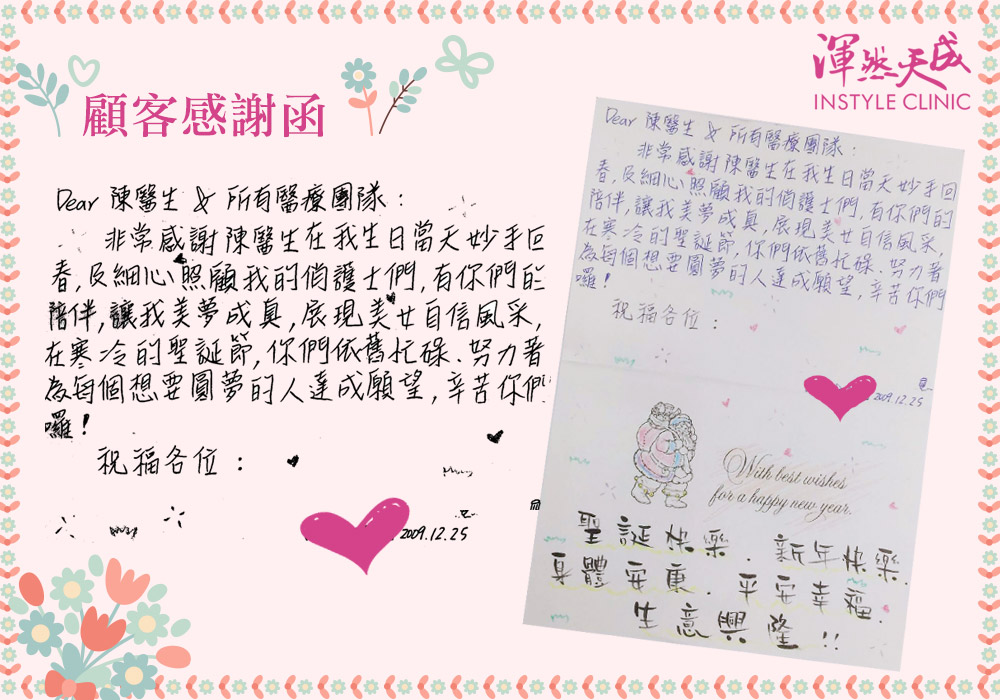 渾然天成
INSTYLE CLINIC
顧客感謝函
Dear 陳醫生 & 所有醫療團隊：
非常感謝陳醫生在我生日當天妙手回
春,及細心照顧我的俏護士們,有你們的
陪伴,讓我美夢成真,展現美女自信風采,
在寒冷的聖誕節,你們依舊忙碌、努力著
為每個想要圓夢的人達成願望,辛苦你們
囉!
祝福各位：
2009.12.25
Dear 陳醫生 & 所有醫療團隊：
非常感謝陳醫生在我生日當天妙手回
春,及細心照顧我的俏護士們,有你們的
陪伴,讓我美夢成真,展現美女自信風采,
在寒冷的聖誕節,你們依舊忙碌、努力著
為每個想要圓夢的人達成願望,辛苦你們
囉!
祝福各位：
2009.12.25
With best wishes
for a happy new year.
聖誕快樂．新年快樂．
身體安康．平安幸福．
生意興隆!!